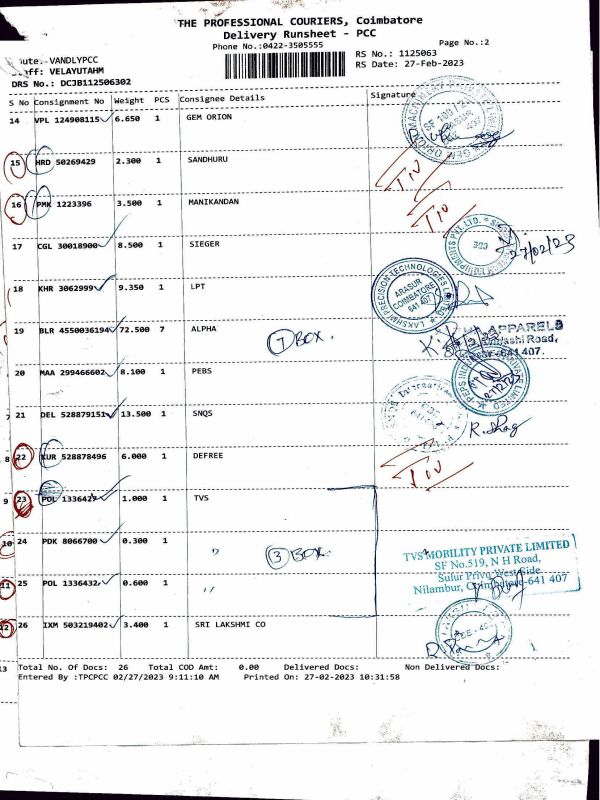 THE PROFESSIONAL COURIERS, Coimbatore
Delivery Runsheet - PCC
Phone No.:0422-3505555
Page No.:2
ute:-VANDLYPCC
aff: VELAYUTAHM
RS No.: 1125063
RS Date: 27-Feb-2023
DRS No.: DCJB112506302
S No Consignment No Weight PCS Consignee Details Signature
14 VPL 124908115 6.650 1 GEM ORION
SF 100/2A
15 HRD 50269429 2.300 1 SANDHURU
16 PMK 1223396 3.500 1 MANIKANDAN
17 CGL 30018900 8.500 1 SIEGER
27/02/23
18 KHR 3062999 9.350 1 LPT
LAKSHMI PRECISION TECHNOLOGIES LIMITED
ARASUR
COIMBATORE
641 407
19 BLR 4550036194 72.500 7 ALPHA
7 BOX.
APPARELS
Road,
641 407.
20 MAA 299466602 8.100 1 PEBS
21 DEL 528879151 13.500 1 SNQS
8 22 KUR 528878496 6.000 1 DEFREE
9 23 POL 1336427 1.000 1 TVS
10 24 PDK 8066700 0.300 1 "
3 BOX.
11 25 POL 1336432 0.600 1 "
TVS MOBILITY PRIVATE LIMITED
SF No.519, N H Road,
Sulur Privu West Side,
Nilambur, Coimbatore-641 407
12 26 IXM 503219402 3.400 1 SRI LAKSHMI CO
13 Total No. Of Docs: 26 Total COD Amt: 0.00 Delivered Docs: Non Delivered Docs:
Entered By :TPCPCC 02/27/2023 9:11:10 AM Printed On: 27-02-2023 10:31:58